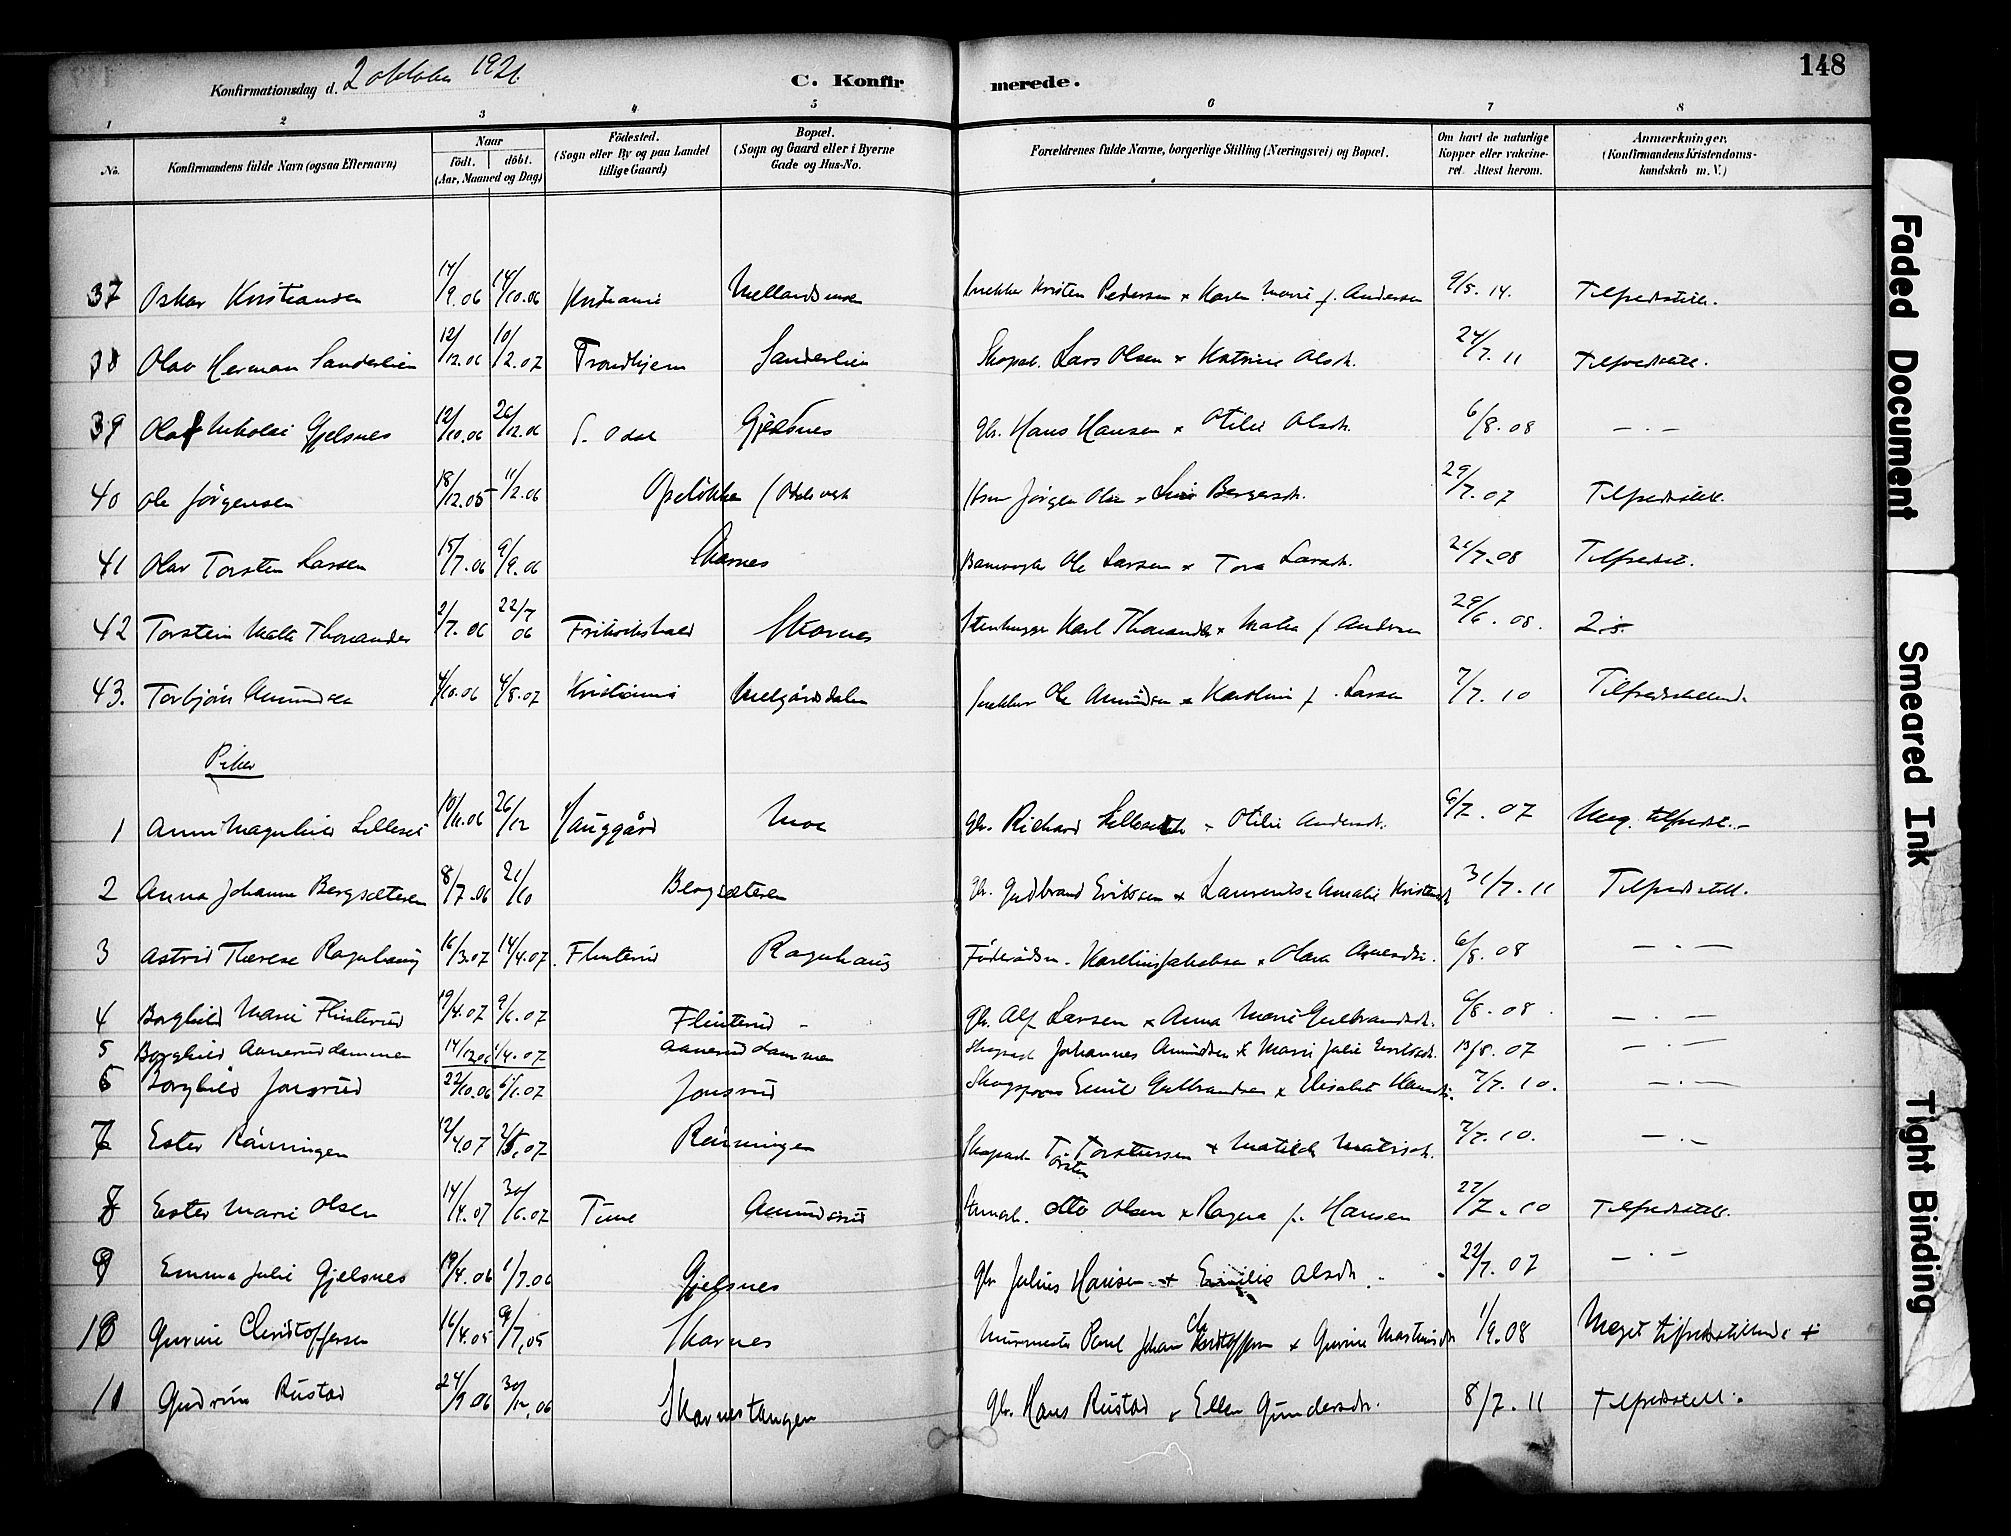 148
Konfirmationsdag d. 2 oktober 1921.
C. Konfirmerede.
1 2 3 4 5 6 7 8
No. Konfirmandens fulde Navn (ogsaa Efternavn) Naar födt. döbt. (Aar, Maaned og Dag) Födested. (Sogn eller By og paa Landet tillige Gaard) Bopæl. (Sogn og Gaard eller i Byerne Gade og Hus-No. Forældrenes fulde Navne, borgerlige Stilling (Næringsvei) og Bopæl. Om havt de naturlige Kopper eller vakcineret. Attest herom. Anmærkninger. (Konfirmandens Kristendomskundskab m. V.)
37 Oskar Kristiansen 14/9.06 14/10.06 Kristiania Kristen Pedersen x Karen Marie f. Andersen 9/5.14. Tilfredsstill.
38 Olav Herman Sanderlien 12/12.06 10/2.07 Trondhjem Sanderlien Skogsarb. Lars Olsen x Katrine Olsdt. 24/7.11 Tilfredsstill.
39 Olaf Nikolai Gjelsnes 12/10.06 26/12.06 S. Odal Gjelsnes Gbr. Hans Hansen x Otilie Olsdt. 6/8.08 — . —
40 Ole Jörgensen 18/12.05 11/2.06 Jörgen Olsen x Bergersdt. 29/7.07 Tilfredsstill.
41 Olav Torsten Larsen 15/7.06 9/9.06 Skarnes Banevogter Ole Larsen x Tora Larsdt. 21/7.08 Tilfredsst.
42 Torstein Thorander 2/7.06 22/7 06 Skarnes Stenhugger Karl Thorander x f. Andersen 29/6.08. 2.s.
43. Torbjörn Amundsen 4/10.06 4/8.07 Kristiania Snekker Ole Amundsen x Karoline f. Larsen 7/7.10 Tilfredsstillend.
Piker
1 Anna Magnhild Lilleset 10/11.06 26/12 Hauggård Moe Gbr. Richard x Otilie Andersdt. 6/7.07 Meg. tilfredst.
2 Anna Johanne Bergsæteren 8/7.06 21/10 Bergsæteren Gbr. Gudbrand Eriksen x Laurentse Amalie Kristensdt 31/7.11 Tilfredsstill.
3 Astrid Therese Ragnhaug 16/3.07 14/4.07. Flinterud Ragnhaug 6/8.08 — . —
4 Borghild Marie Flinterud 19/4.07 9/6.07 Flinterud - Gbr. Alf Larsen x Anna Marie Gulbrandsdt. 6/8.08. — . —
5 Borghild Aanerudammen 14/12.06 1/4.07 Aanerudammen Skogsarb Johannes Amundsen x Marie Julie Eriksdt. 13/8.07 — . —
6 Borghild Jonsrud 22/10.06 6/1.07 Jonsrud Emil Gulbrandsen x Elisabet Hansdt. 7/7.10. — . —
7 Ester Rönningen 12/4.07 2/5.07 Rönningen Skogsarb. Torsten Torstensen x Matilde Matisdt. 7/7.10. — . —
8 Ester Marie Olsen 14/4.07 30/6.07 Tune Amundsrud Otto Olsen x Ragna f. Hansen 22/7.10 Tilfredsstill.
9 Emma Julie Gjelsnes 19/4.06 1/7.06 Gjelsnes Gbr Julius Hansen x Emilie Olsdt. 22/7.07 — . —
10 Gurine Christoffersen 16/4.05 9/7.05 Skarnes Murmester Paul Johan Christoffersen x Gurine Martinsdt 1/9.08 Meget tilfredsstillende +
11 Gudrun Rustad 24/9 06 30/12.06 Skarnestangen Gbr. Hans Rustad x Ellen Gundersdt. 8/7.11 Tilfredsstill.
Faded Document
Smeared Ink
Tight Binding